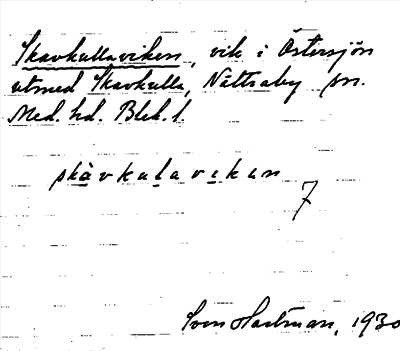 Skavkullaviken, vik i Östersjön
utmed Skavkulla, Nättraby sn.
Med. hd. Blek. l.
skàvkulavikən
7
Sven Hartman, 1930